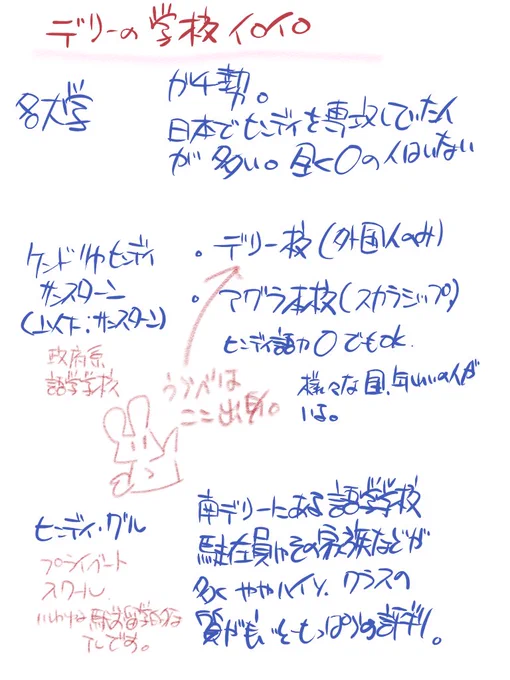 デリーの学校イロイロ
各大学
ガチ勢。
日本でヒンディを専攻していた人
が多い。全く〇の人はいない
ケンドリヤヒンディ
サンスターン
(以下:サンスターン)
政府系
語学学校
・デリー校(外国人のみ)
・アグラ本校(スカラシップ)
ヒンディ語力〇でもOK.
様々な国、年れいの人が
いる。
うらべは
ここ出身。
ヒンディ・グル
プライベート
スクール.
いわゆる駅前留学的な
アレです。
南デリーにある語学学校
駐在員やその家族などが
多く ややハイソ. クラスの
質がもっぱらの評判。